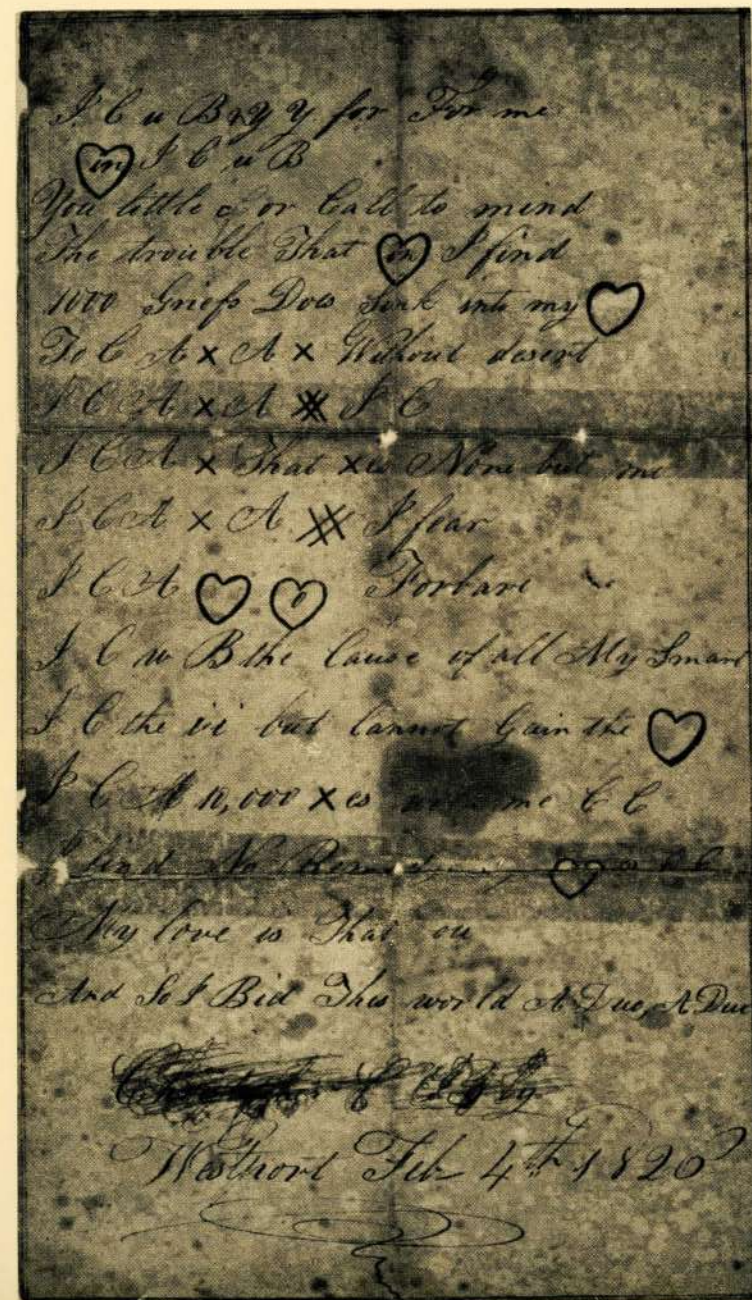 I C u B yy for For me
in I C u B
You little or Call to mind
The trouble That in I find
1000 Griefs Does Sink into my
To C A x A x Without desert
I C A x A I C
I C A x That x is None but me
I C A x A I fear
I C A Forbare
I C u B the Cause of all My Smart
I C the ii but Cannot Gain the
I C A 10,000 x es me C C
I find No
My love is That ou
And So I Bid This world A Due, A Due
Westport Feb 4th 1820